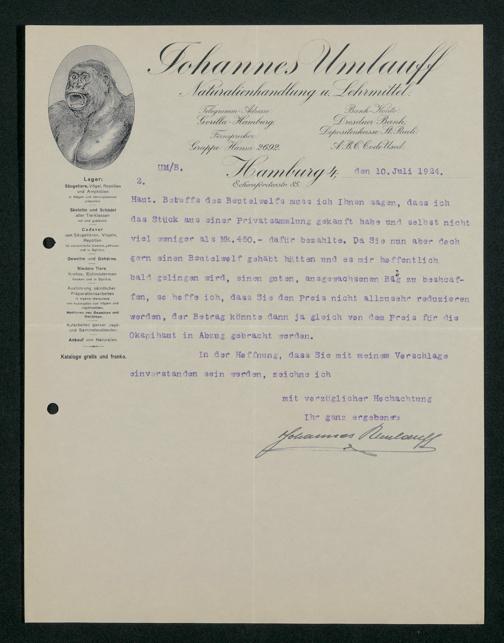 Johannes Umlauff
Naturalienhandlung u. Lehrmittel.
Telegramm-Adresse:
Gorilla-Hamburg.
Fernsprecher:
Gruppe Hansa 2692.
Bank-Konto:
Dresdner Bank,
Depositenkasse St. Pauli.
A.B.C. Code Used.
UM/B.
Hamburg 4, den 10. Juli 1924.
Eckernfoerderstr. 85.
2.
Lager:
Säugetiere, Vögel, Reptilien
und Amphibien
Skelette und Schädel
aller Tierklassen
Cadaver
von Säugetieren, Vögeln,
Reptilien
Geweihe und Gehörne.
Niedere Tiere
Ausführung sämtlicher
Präparationsarbeiten
Aufarbeiten ganzer Jagd-
und Sammelausbeuten.
Ankauf von Naturalien.
Kataloge gratis und franko.
Haut. Betreffs des Beutelwolfs muss ich Ihnen sagen, dass ich
das Stück aus einer Privatsammlung gekauft habe und selbst nicht
viel weniger als Mk.450.- dafür bezahlte. Da Sie nun aber doch
gern einen Beutelwolf gehabt hätten und es mir hoffentlich
bald gelingen wird, einen guten, ausgewachsenen zu beschaf-
fen, so hoffe ich, dass Sie den Preis nicht allzusehr reduzieren
werden, der Betrag könnte dann ja gleich von dem Preis für die
Okapihaut in Abzug gebracht werden.
In der Hoffnung, dass Sie mit meinem Vorschlage
einverstanden sein werden, zeichne ich
mit vorzüglicher Hochachtung
Ihr ganz ergebener
Johannes Umlauff